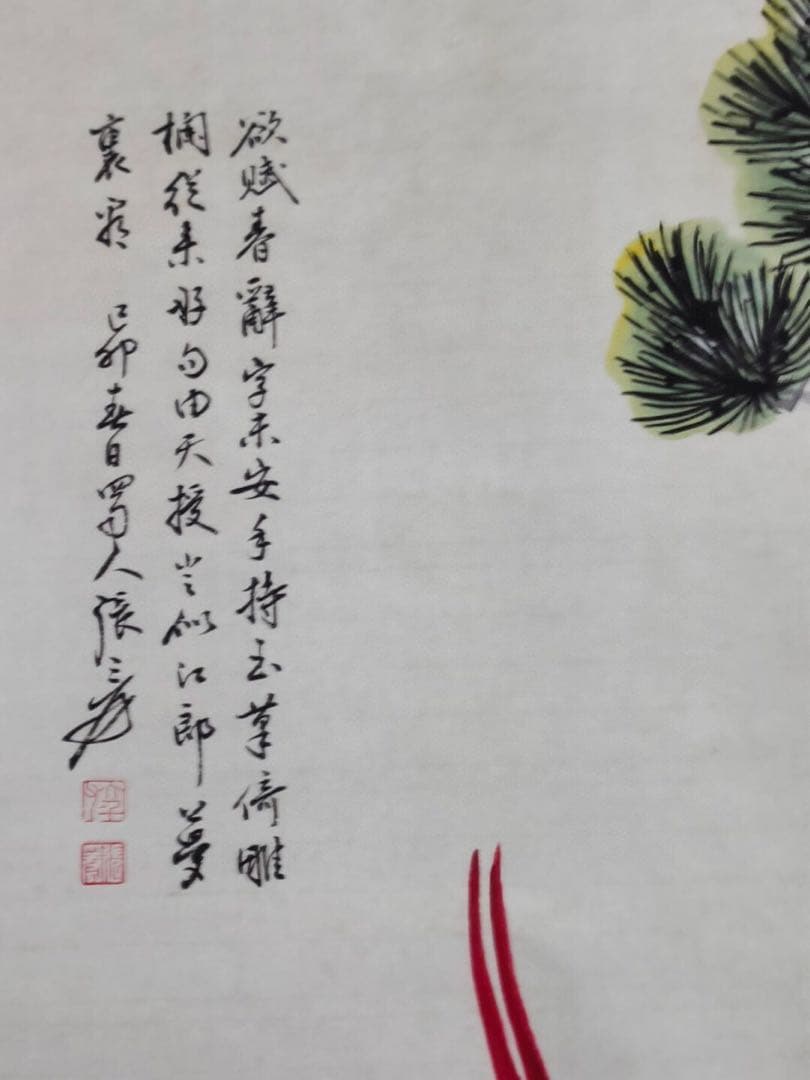 欲賦春辭字未安手持玉筆倚雕
欄從來好句由天授豈似江郎夢
裏看 己卯春日蜀人張大千爰